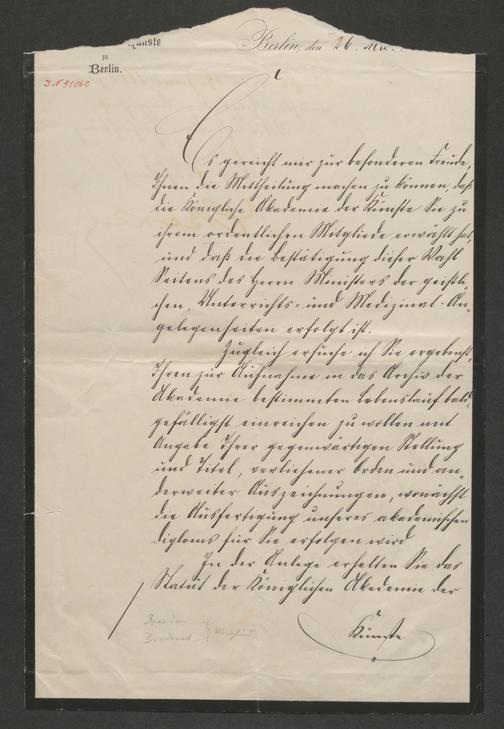 Künste
zu
Berlin.
Berlin, den 26.
J. N 91062
Es gereicht mir zur besonderen Freude,
Ihnen die Mittheilung machen zu können, daß
die Königliche Akademie der Künste Sie zu
ihrem ordentlichen Mitgliede erwählt hat,
und daß die Bestätigung dieser Wahl
Seitens des Herrn Ministers der geistli-
chen, Unterrichts- und Medizinal-An-
gelegenheiten erfolgt ist.
Zugleich ersuche ich Sie ergebenst,
Ihren zur Aufnahme in das Archiv der
Akademie bestimmten Lebenslauf bald-
gefälligst einreichen zu wollen mit
Angabe Ihrer gegenwärtigen Stellung
und Titel, verliehener Orden und an-
derweiter Auszeichnungen, wonächst
die Ausfertigung unseres akademischen
Diploms für Sie erfolgen wird
In der Anlage erhalten Sie das
Statut der Königlichen Akademie der
Künste